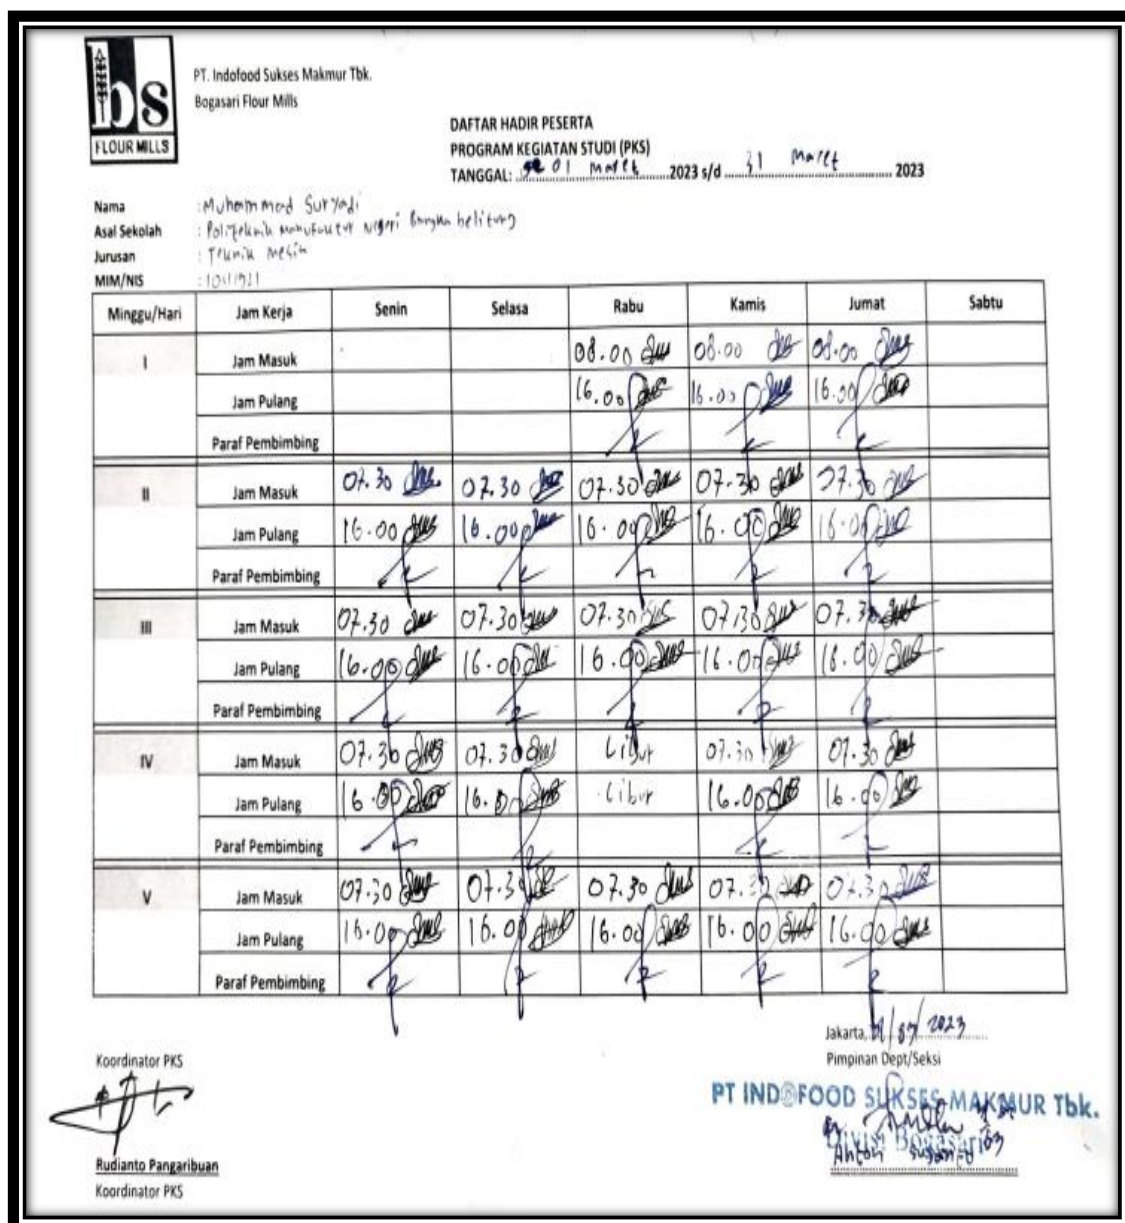 bs
FLOUR MILLS
PT. Indofood Sukses Makmur Tbk.
Bogasari Flour Mills
DAFTAR HADIR PESERTA
PROGRAM KEGIATAN STUDI (PKS)
TANGGAL: 01 Maret 2023 s/d 31 Maret 2023
Nama : Muhammad Suryadi
Asal Sekolah : Politeknik Manufaktur Negeri Bangka belitung
Jurusan : Teknik Mesin
MIM/NIS :
Minggu/Hari Jam Kerja Senin Selasa Rabu Kamis Jumat Sabtu
I Jam Masuk 08.00 08.00 08.00
Jam Pulang 16.00 16.00 16.00
Paraf Pembimbing
II Jam Masuk 07.30 07.30 07.30 07.30 07.30
Jam Pulang 16.00 16.00 16.00 16.00 16.00
Paraf Pembimbing
III Jam Masuk 07.30 07.30 07.30 07.30 07.30
Jam Pulang 16.00 16.00 16.00 16.00 16.00
Paraf Pembimbing
IV Jam Masuk 07.30 07.30 Libur 07.30 07.30
Jam Pulang 16.00 16.00 Libur 16.00 16.00
Paraf Pembimbing
V Jam Masuk 07.30 07.30 07.30 07.30 07.30
Jam Pulang 16.00 16.00 16.00 16.00 16.00
Paraf Pembimbing
Jakarta, 31/03/2023
Koordinator PKS
Pimpinan Dept/Seksi
PT INDOFOOD SUKSES MAKMUR Tbk.
Divisi Bogasari
Rudianto Pangaribuan
Koordinator PKS